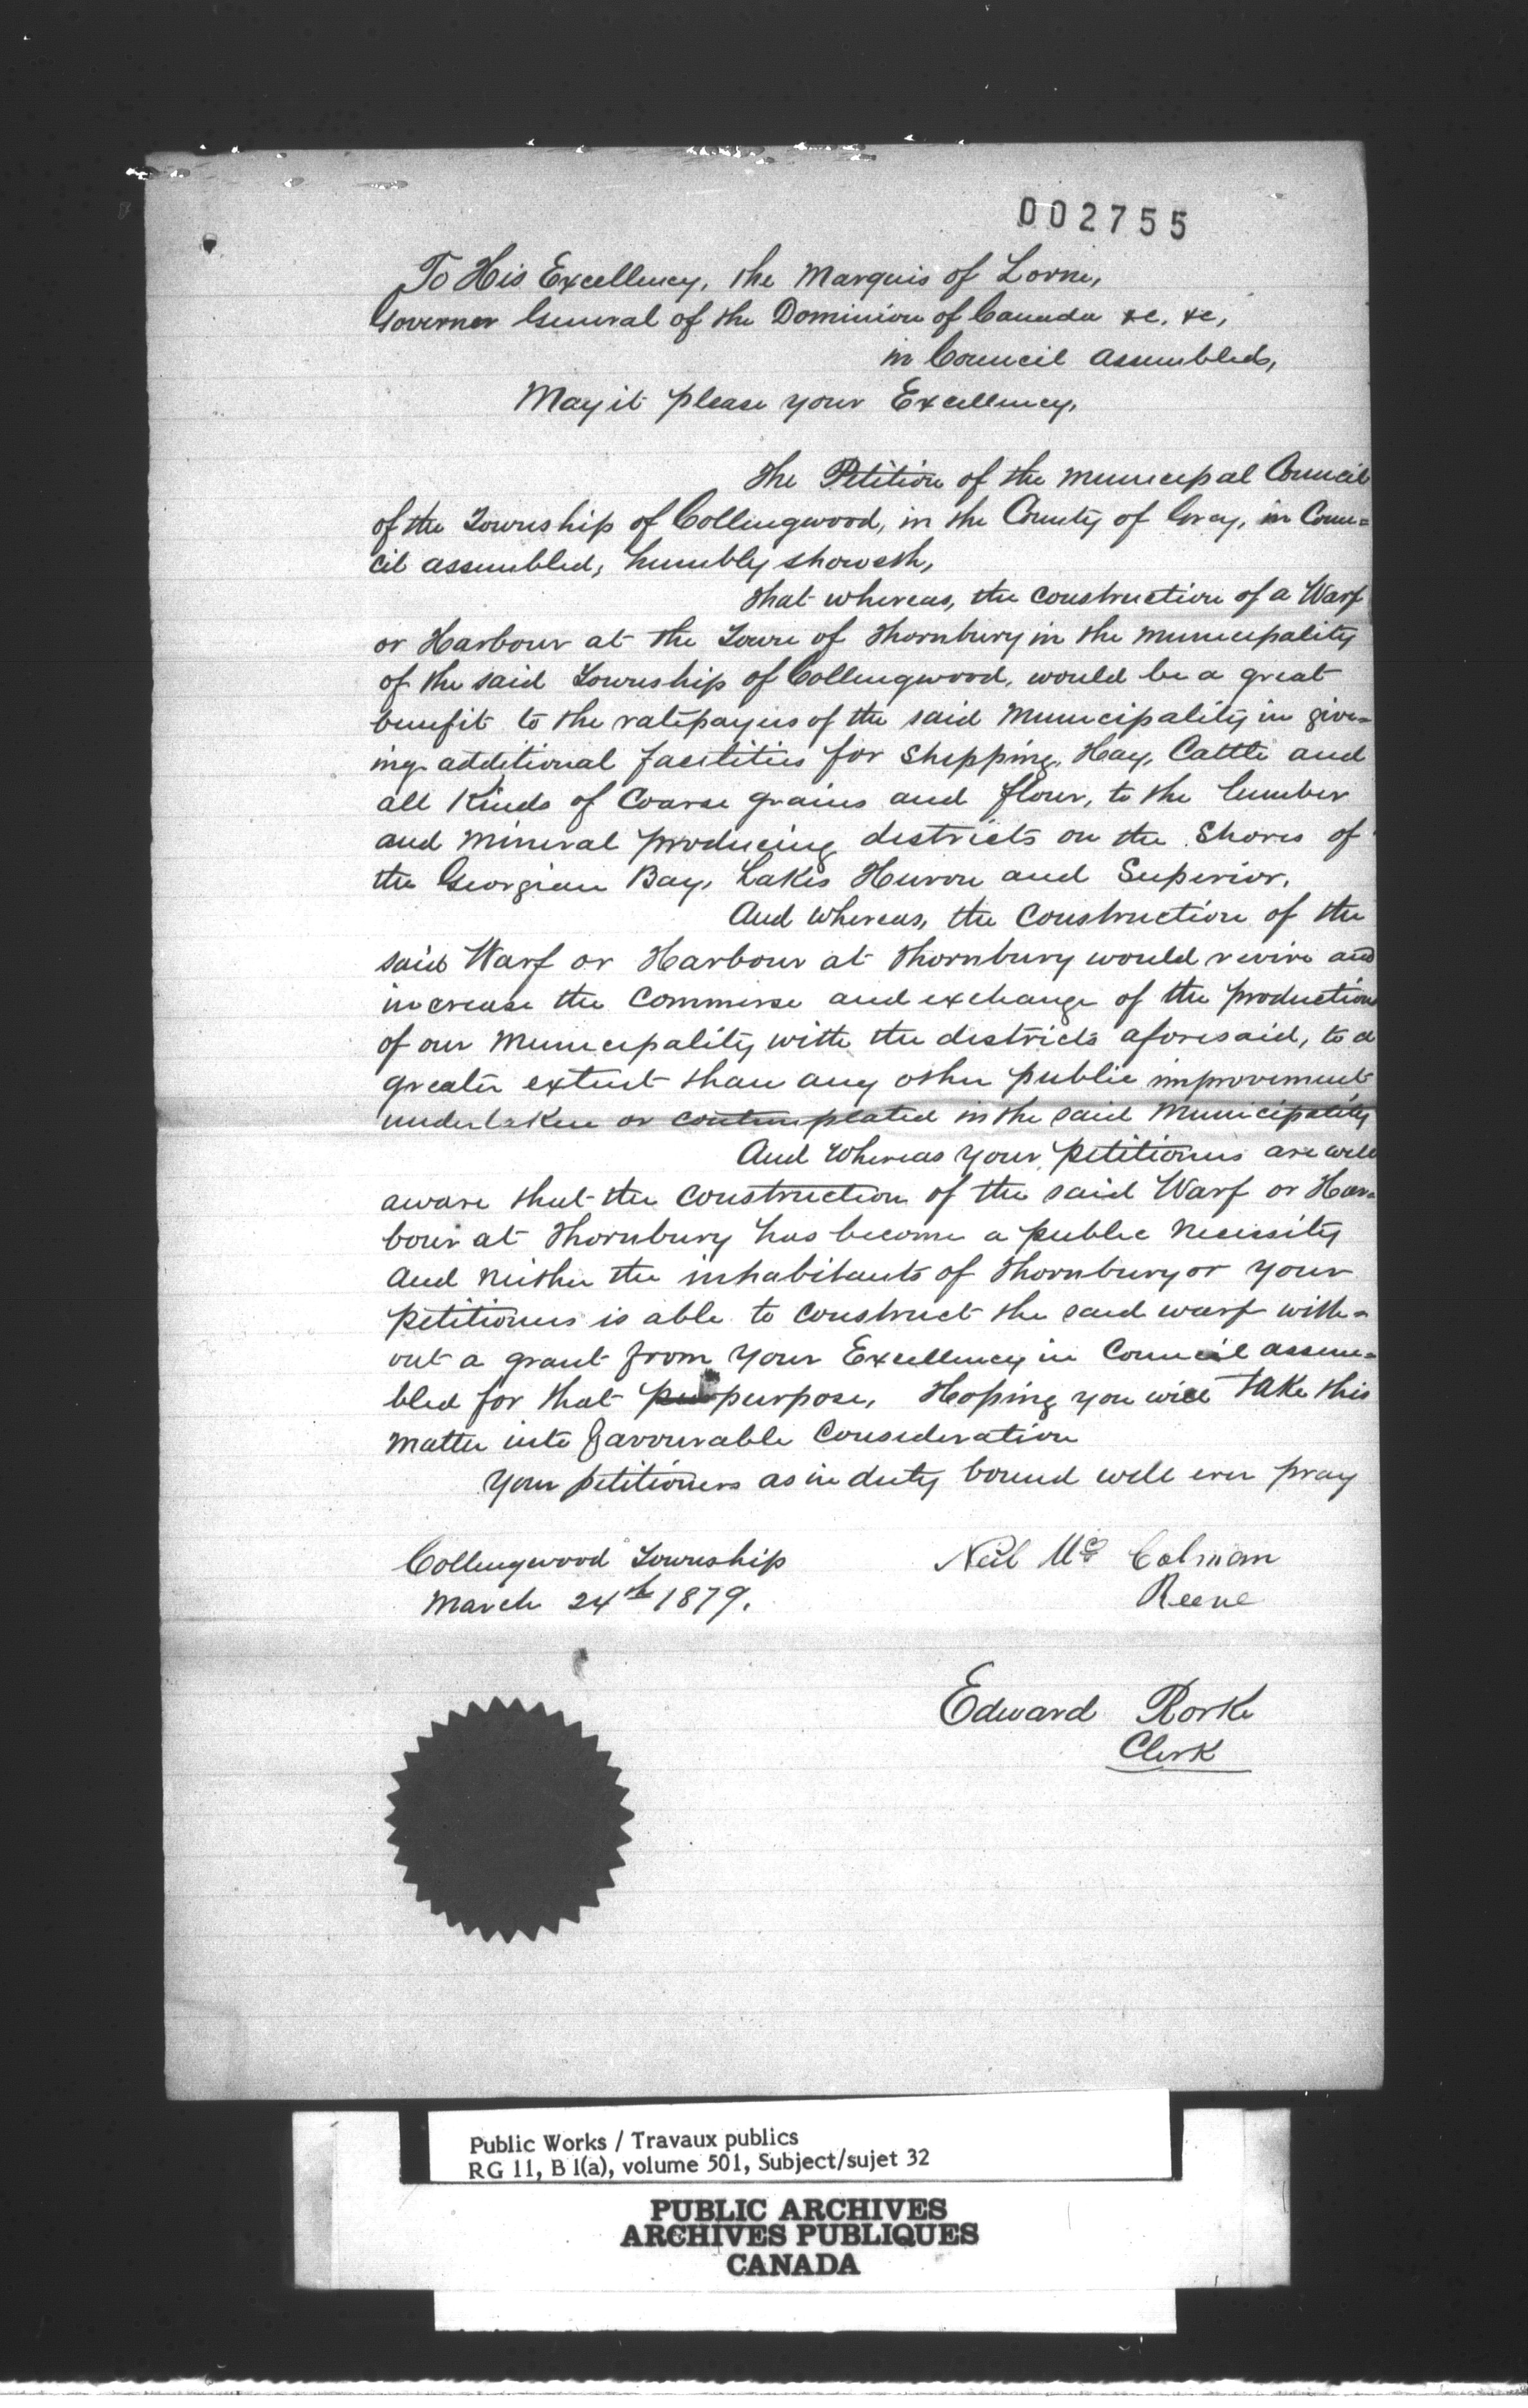 002755
To His Excellency, the Marquis of Lorne,
Governor General of the Dominion of Canada &c. &c,
in Council assembled,
May it please your Excellency,
The Petition of the Municipal Council
of the Township of Collingwood, in the County of Grey, in Coun=
cil assembled, humbly showeth,
That whereas, the construction of a Warf
or Harbour at the Town of Thornbury in the municipality
of the said Township of Collingwood, would be a great
benefit to the ratepayers of the said Municipality in give=
ing additional facilities for Shipping, Hay, Cattle and
all Kinds of Coarse grains and flour, to the lumber
and mineral producing districts on the Shores of
the Georgian Bay, Lakes Huron and Superior.
And whereas, the Construction of the
said Warf or Harbour at Thornbury would revive and
increase the Commerse and exchange of the productions
of our Municipality with the districts aforesaid, to a
greater extent than any other public improvement
undertaken or contemplated in the said Municipality
And Whereas your petitioners are well
aware that the construction of the said Warf or Har=
bour at Thornbury has become a public necessity
and neither the inhabitants of Thornbury or your
petitioners is able to construct the said warf with=
out a grant from your Excellency in Council assem=
bled for that pur purpose, Hoping you will take this
matter into favourable Consideration
Your petitioners as in duty bound will ever pray
Collingwood Township
March 24th 1879.
Neil Mc Colman
Reeve
Edward Rorke
Clerk
Public Works / Travaux publics
RG 11, B 1(a), volume 501, Subject/sujet 32
PUBLIC ARCHIVES
ARCHIVES PUBLIQUES
CANADA